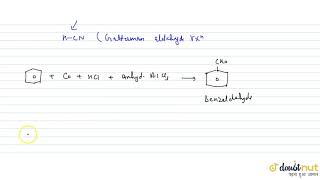 H-CN (Gattermann aldehyde rxn
CHO
+ CO + HCl + anhyd. AlCl3 →
Benzaldehyde
doubtnut